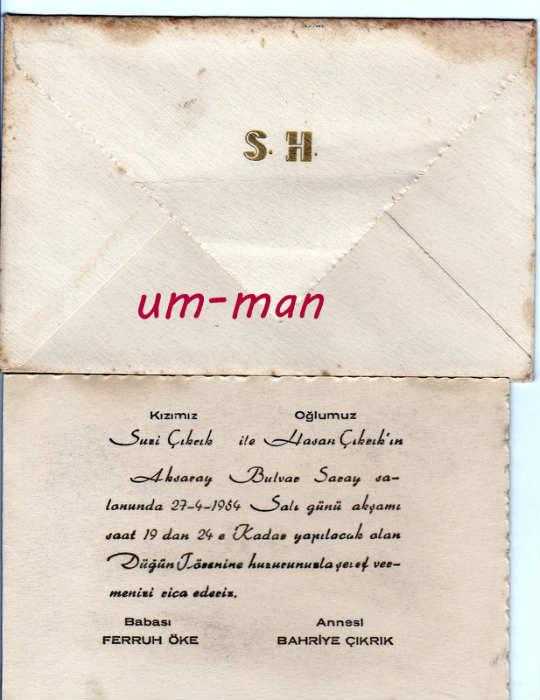 S. H.
um-man
Kızımız Oğlumuz
Suzi Çıkrık ile Hasan Çıkrık'ın
Aksaray Bulvar Saray sa-
lonunda 27-4-1964 Salı günü akşamı
saat 19 dan 24 e Kadar yapılacak olan
Düğün Törenine huzurunuzla şeref ver-
menizi rica ederiz.
Babası Annesi
FERRUH ÖKE BAHRİYE ÇIKRIK